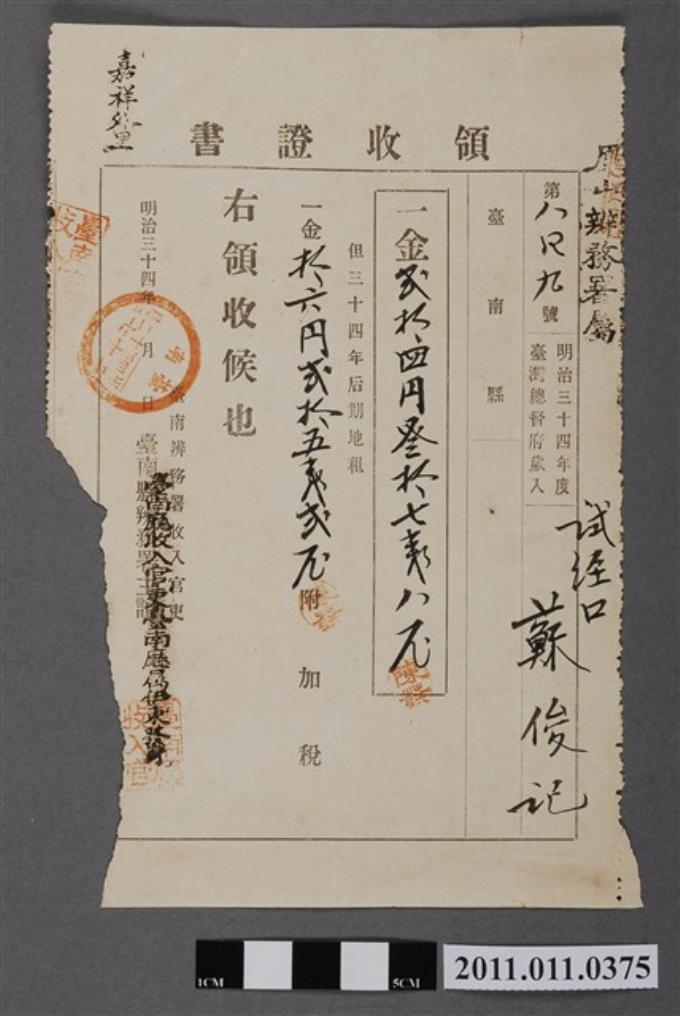 嘉祥外里
領收證書
辨務署屬
第八尺九號
明治三十四年度
臺灣總督府歲入
試經口
蘇俊記
臺南縣
一金貳拾四円參拾七戔八厘
但三十四年后期地租
一金拾六円貳拾五戔貳厘附加稅
右領收候也
明治三十四年 月 日
臺南辨務署收入官吏
臺南縣辨務署主記
臺南廳收入官吏臺南廳屬伊東
1CM
5CM
2011.011.0375